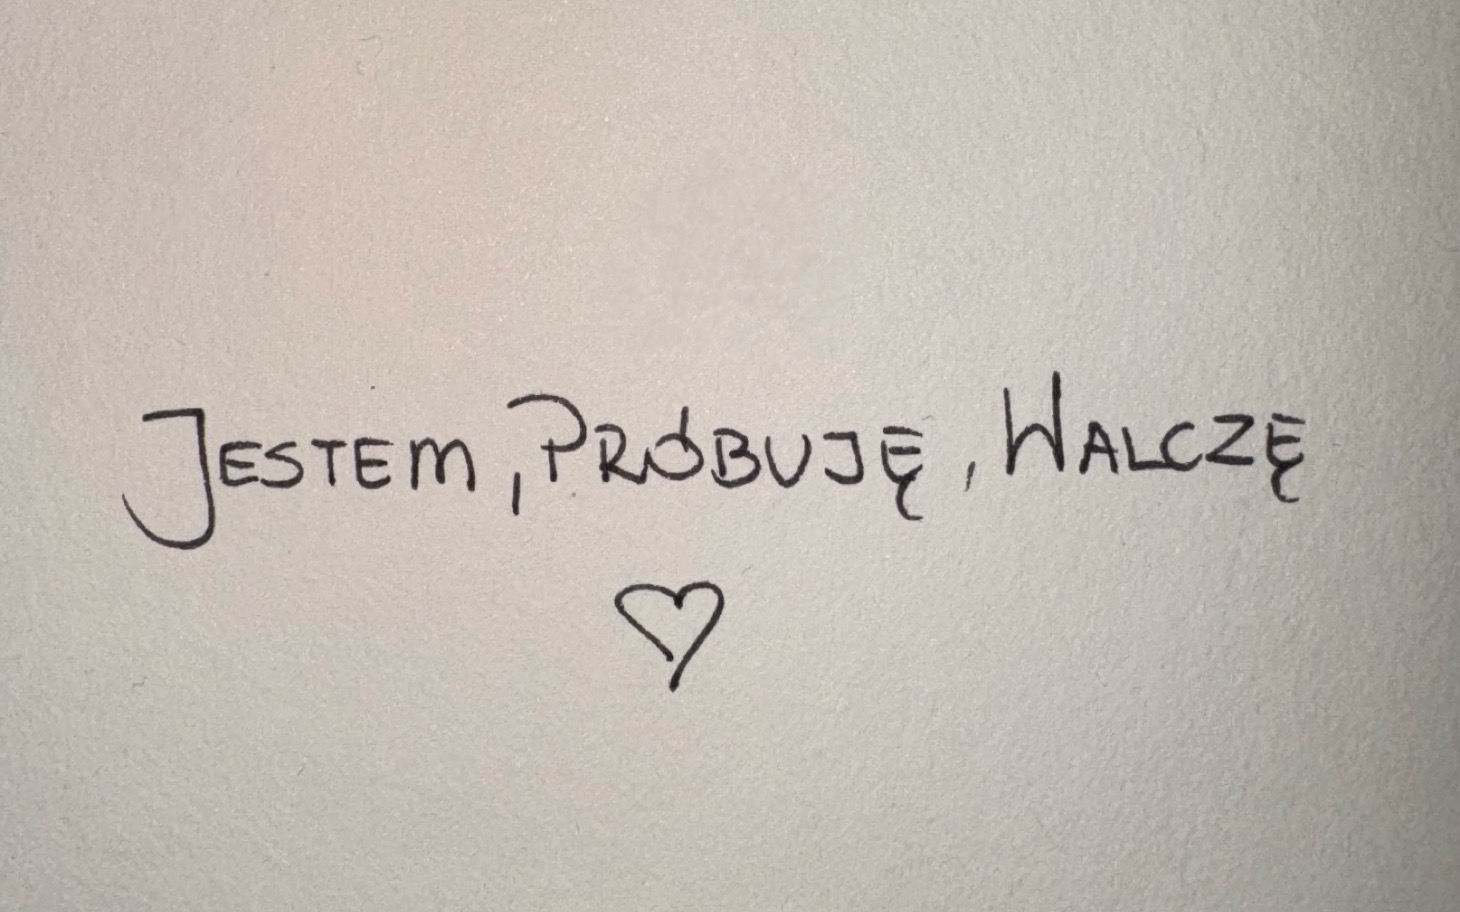 JESTEM, PRÓBUJĘ, WALCZĘ
♡